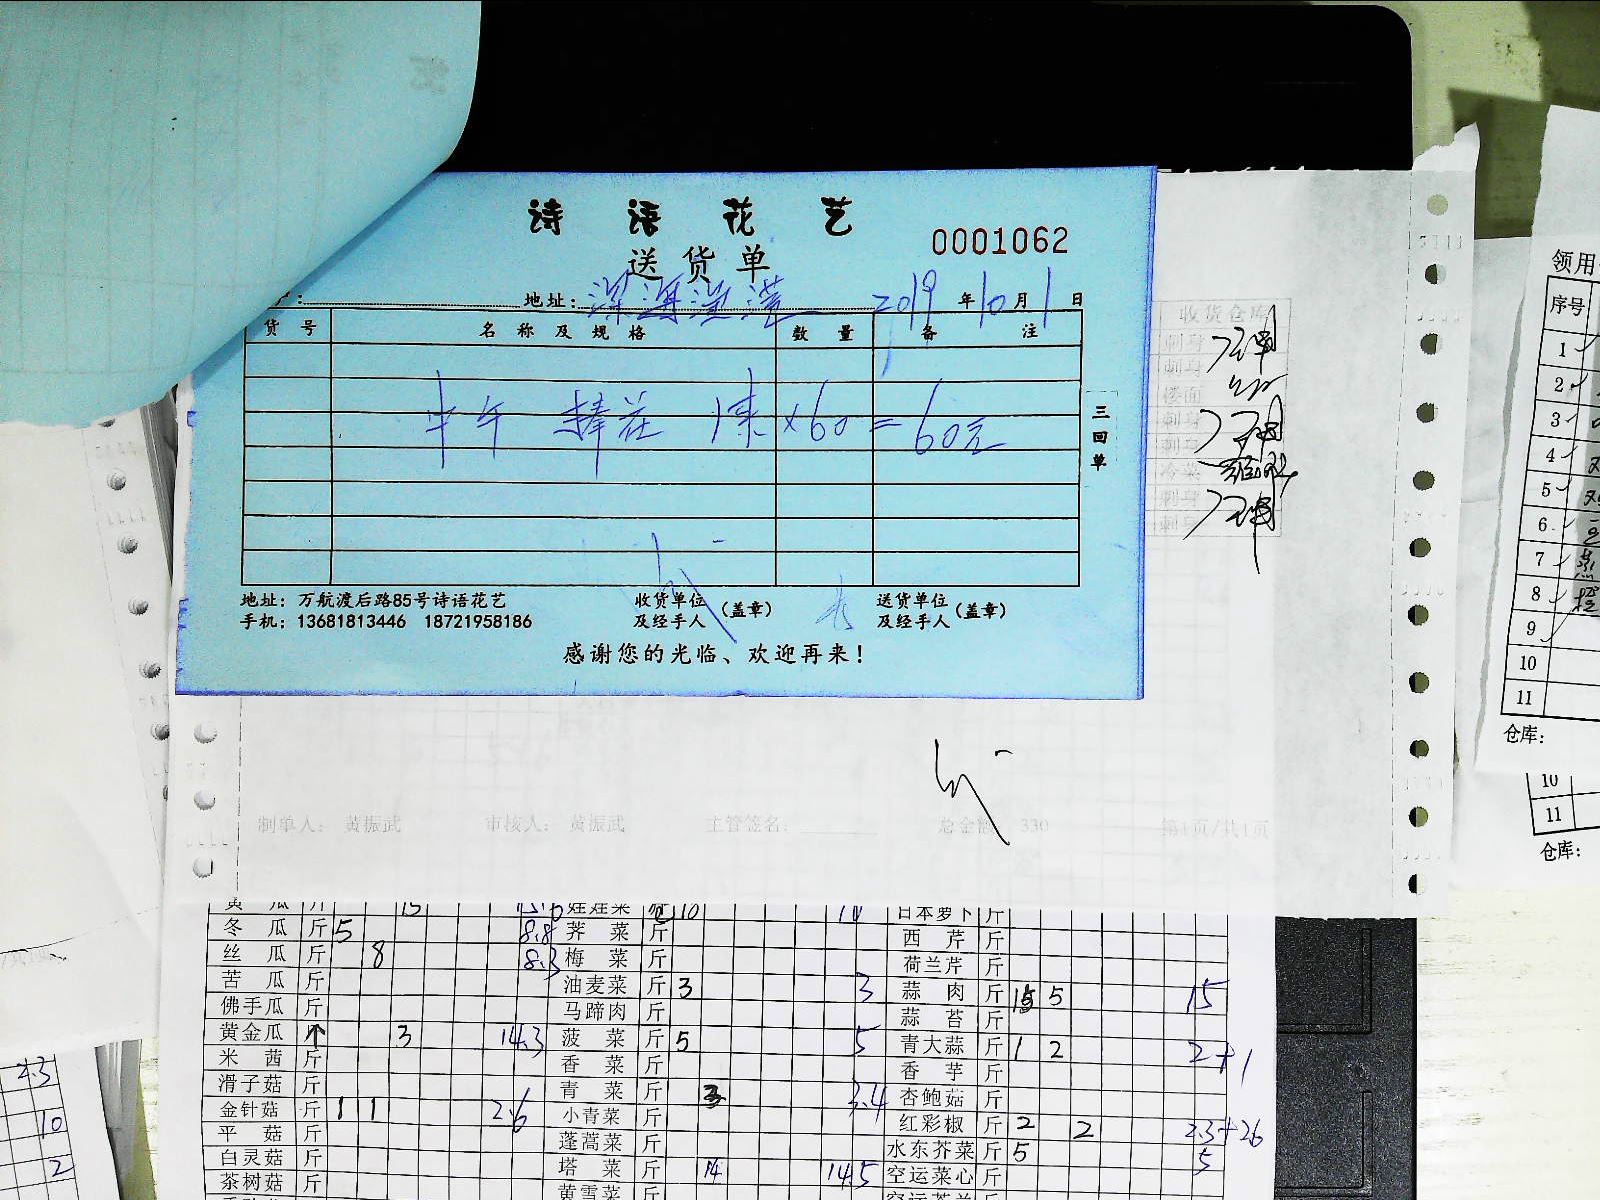 诗语花艺
送货单
0001062
地址：
2019年10月1日
货号 名称及规格 数量 备注
中午 捧花 1束×60=60元
三回单
地址：万航渡后路85号诗语花艺
手机：13681813446 18721958186
收货单位及经手人（盖章）
送货单位及经手人（盖章）
感谢您的光临、欢迎再来！
收货仓库
刺身
刺身
楼面
刺身
刺身
冷菜
刺身
刺身
制单人： 黄振武 审核人： 黄振武 主管签名： 总金额 330 第1页/共1页
黄瓜 斤 15 娃娃菜 10 10 日本萝卜 斤
冬瓜 斤 5 8.8 荠菜 斤 西芹 斤
丝瓜 斤 8 8.3 梅菜 斤 荷兰芹 斤
苦瓜 斤 油麦菜 斤 3 3 蒜肉 斤 15 5 15
佛手瓜 斤 马蹄肉 斤 蒜苔 斤
黄金瓜 个 3 14.3 菠菜 斤 5 5 青大蒜 斤 1 2 2+1
米茜 斤 香菜 斤 香芋 斤
滑子菇 斤 青菜 斤 3 3.4 杏鲍菇 斤
金针菇 斤 1 1 2.6 小青菜 斤 红彩椒 斤 2 2 2.3+2.6
平菇 斤 蓬蒿菜 斤 水东芥菜 斤 5 5
白灵菇 斤 塔菜 斤 14 14.5 空运菜心 斤
茶树菇 斤 黄雪菜 斤
领用
序号
1
2
3
4
5
6
7
8
9
10
11
仓库：
10
11
仓库：
2.3
10
2